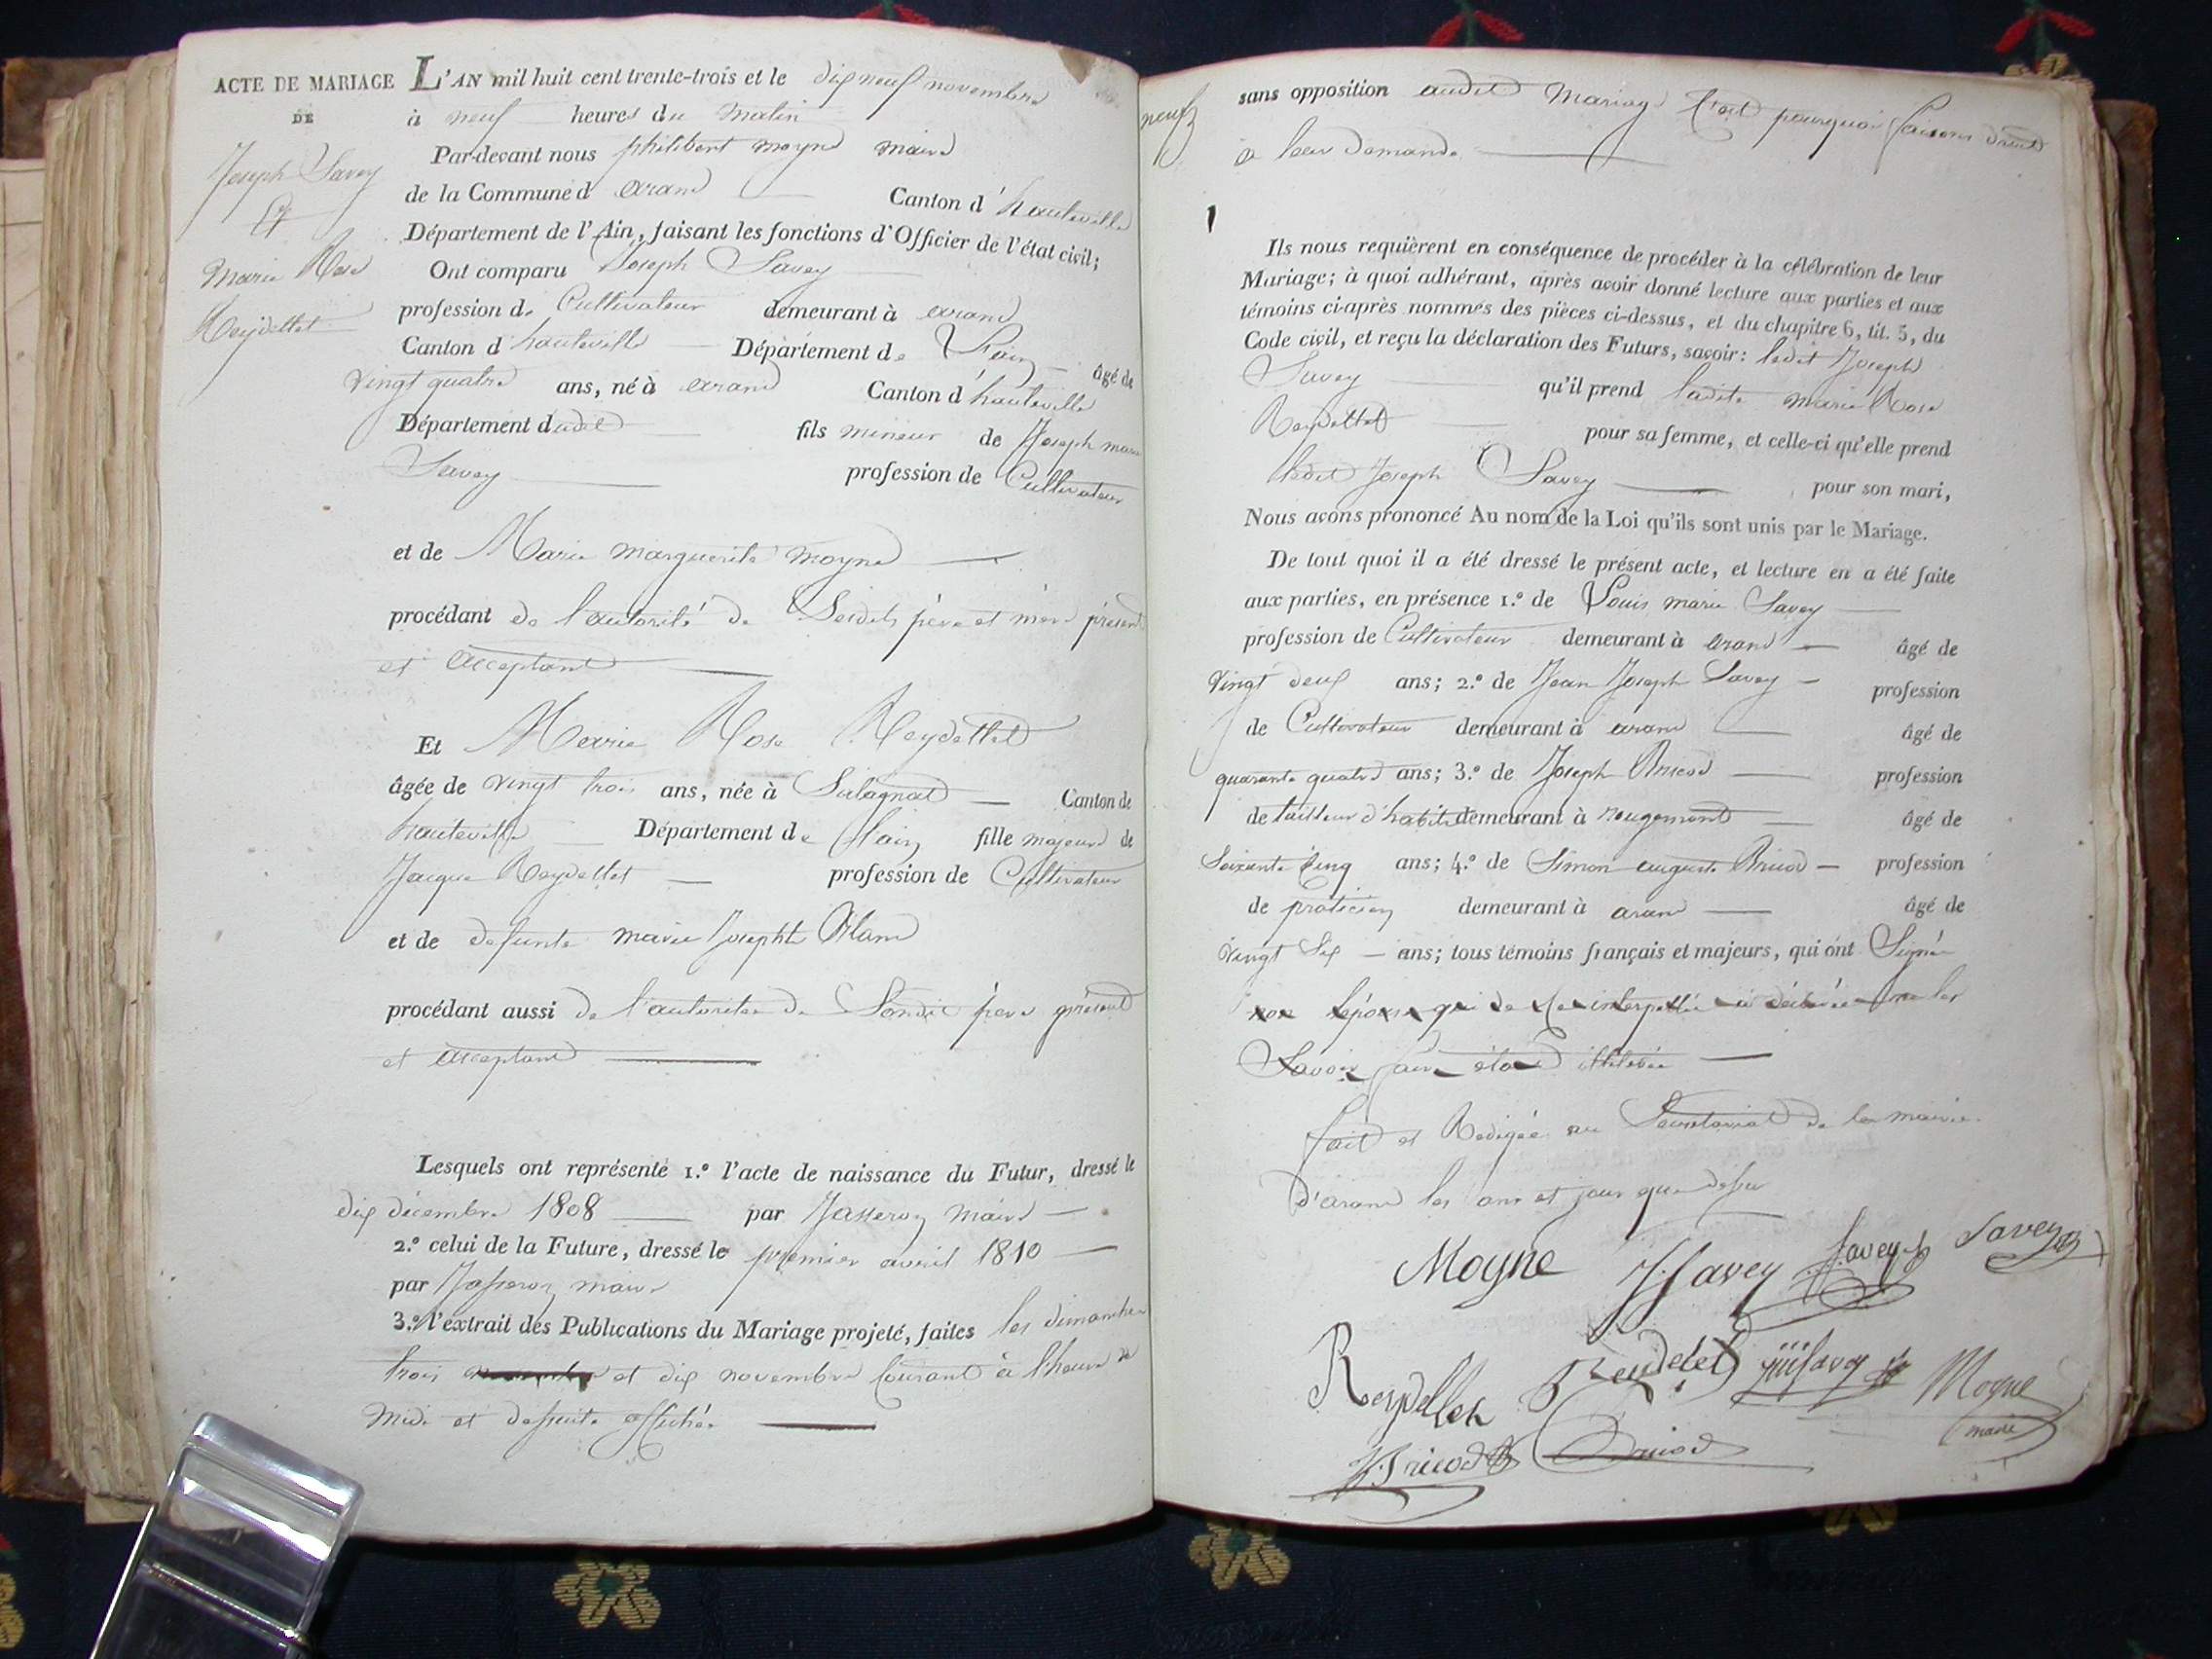 ACTE DE MARIAGE
DE
Joseph Savey
Et
Marie Rose
Reydellet
L'AN mil huit cent trente-trois et le dix neuf novembre
à neuf heures du matin
Par-devant nous philibert moyne maire
de la Commune d aranc Canton d'hauteville
Département de l'Ain, faisant les fonctions d'Officier de l'état civil;
Ont comparu Joseph Savey
profession de Cultivateur demeurant à aranc
Canton d'hauteville Département de Lain âgé de
vingt quatre ans, né à aranc Canton d'hauteville
Département dudit fils mineur de Joseph marie
Savey profession de Cultivateur
et de Marie marguerite moyne
procédant de l'autorité de Sesdits père et mère présent
et acceptant
Et Marie Rose Reydellet
âgée de vingt trois ans, née à Canton de
hauteville Département de Lain fille majeure de
Jacque Reydellet profession de Cultivateur
et de defunte marie Josephte
procédant aussi de l'autoritée de Sondit père présent
et acceptant
Lesquels ont représenté 1.º l'acte de naissance du Futur, dressé le
dix décembre 1808 par Jasseron maire
2.º celui de la Future, dressé le premier avril 1810
par Jasseron maire
3.º l'extrait des Publications du Mariage projeté, faites les dimanches
trois et dix novembre Courant à l'heure de
midi et desuite affichée
neuf
sans opposition audit mariage C'est pourquoi faisons droit
à leur demande
Ils nous requièrent en conséquence de procéder à la célébration de leur
Mariage; à quoi adhérant, après avoir donné lecture aux parties et aux
témoins ci-après nommés des pièces ci-dessus, et du chapitre 6, tit. 5, du
Code civil, et reçu la déclaration des Futurs, savoir: ledit Joseph
Savey qu'il prend ladite marie Rose
Reydellet pour sa femme, et celle-ci qu'elle prend
ledit Joseph Savey pour son mari,
Nous avons prononcé Au nom de la Loi qu'ils sont unis par le Mariage.
De tout quoi il a été dressé le présent acte, et lecture en a été faite
aux parties, en présence 1.º de Louis marie Savey
profession de Cultivateur demeurant à aranc âgé de
vingt deux ans; 2.º de Jean Joseph Savey profession
de Cultivateur demeurant à aranc âgé de
quarante quatre ans; 3.º de Joseph Bricod profession
de tailleur d'habits demeurant à rougemont âgé de
Soixante Cinq ans; 4.º de Simon auguste Bricod profession
de praticien demeurant à aranc âgé de
vingt Six ans; tous témoins français et majeurs, qui ont Signé
non l'épouse qui de Ce interpellée a déclarée ne les
Savoir faire étant illitérée
fait et Redigée au Secretariat de la mairie
d'aranc les an et jour que dessu
Moyne J Savey Savey Savey
Reydellet Reydelet Savey Moyne
maire
J. Bricod Bricod